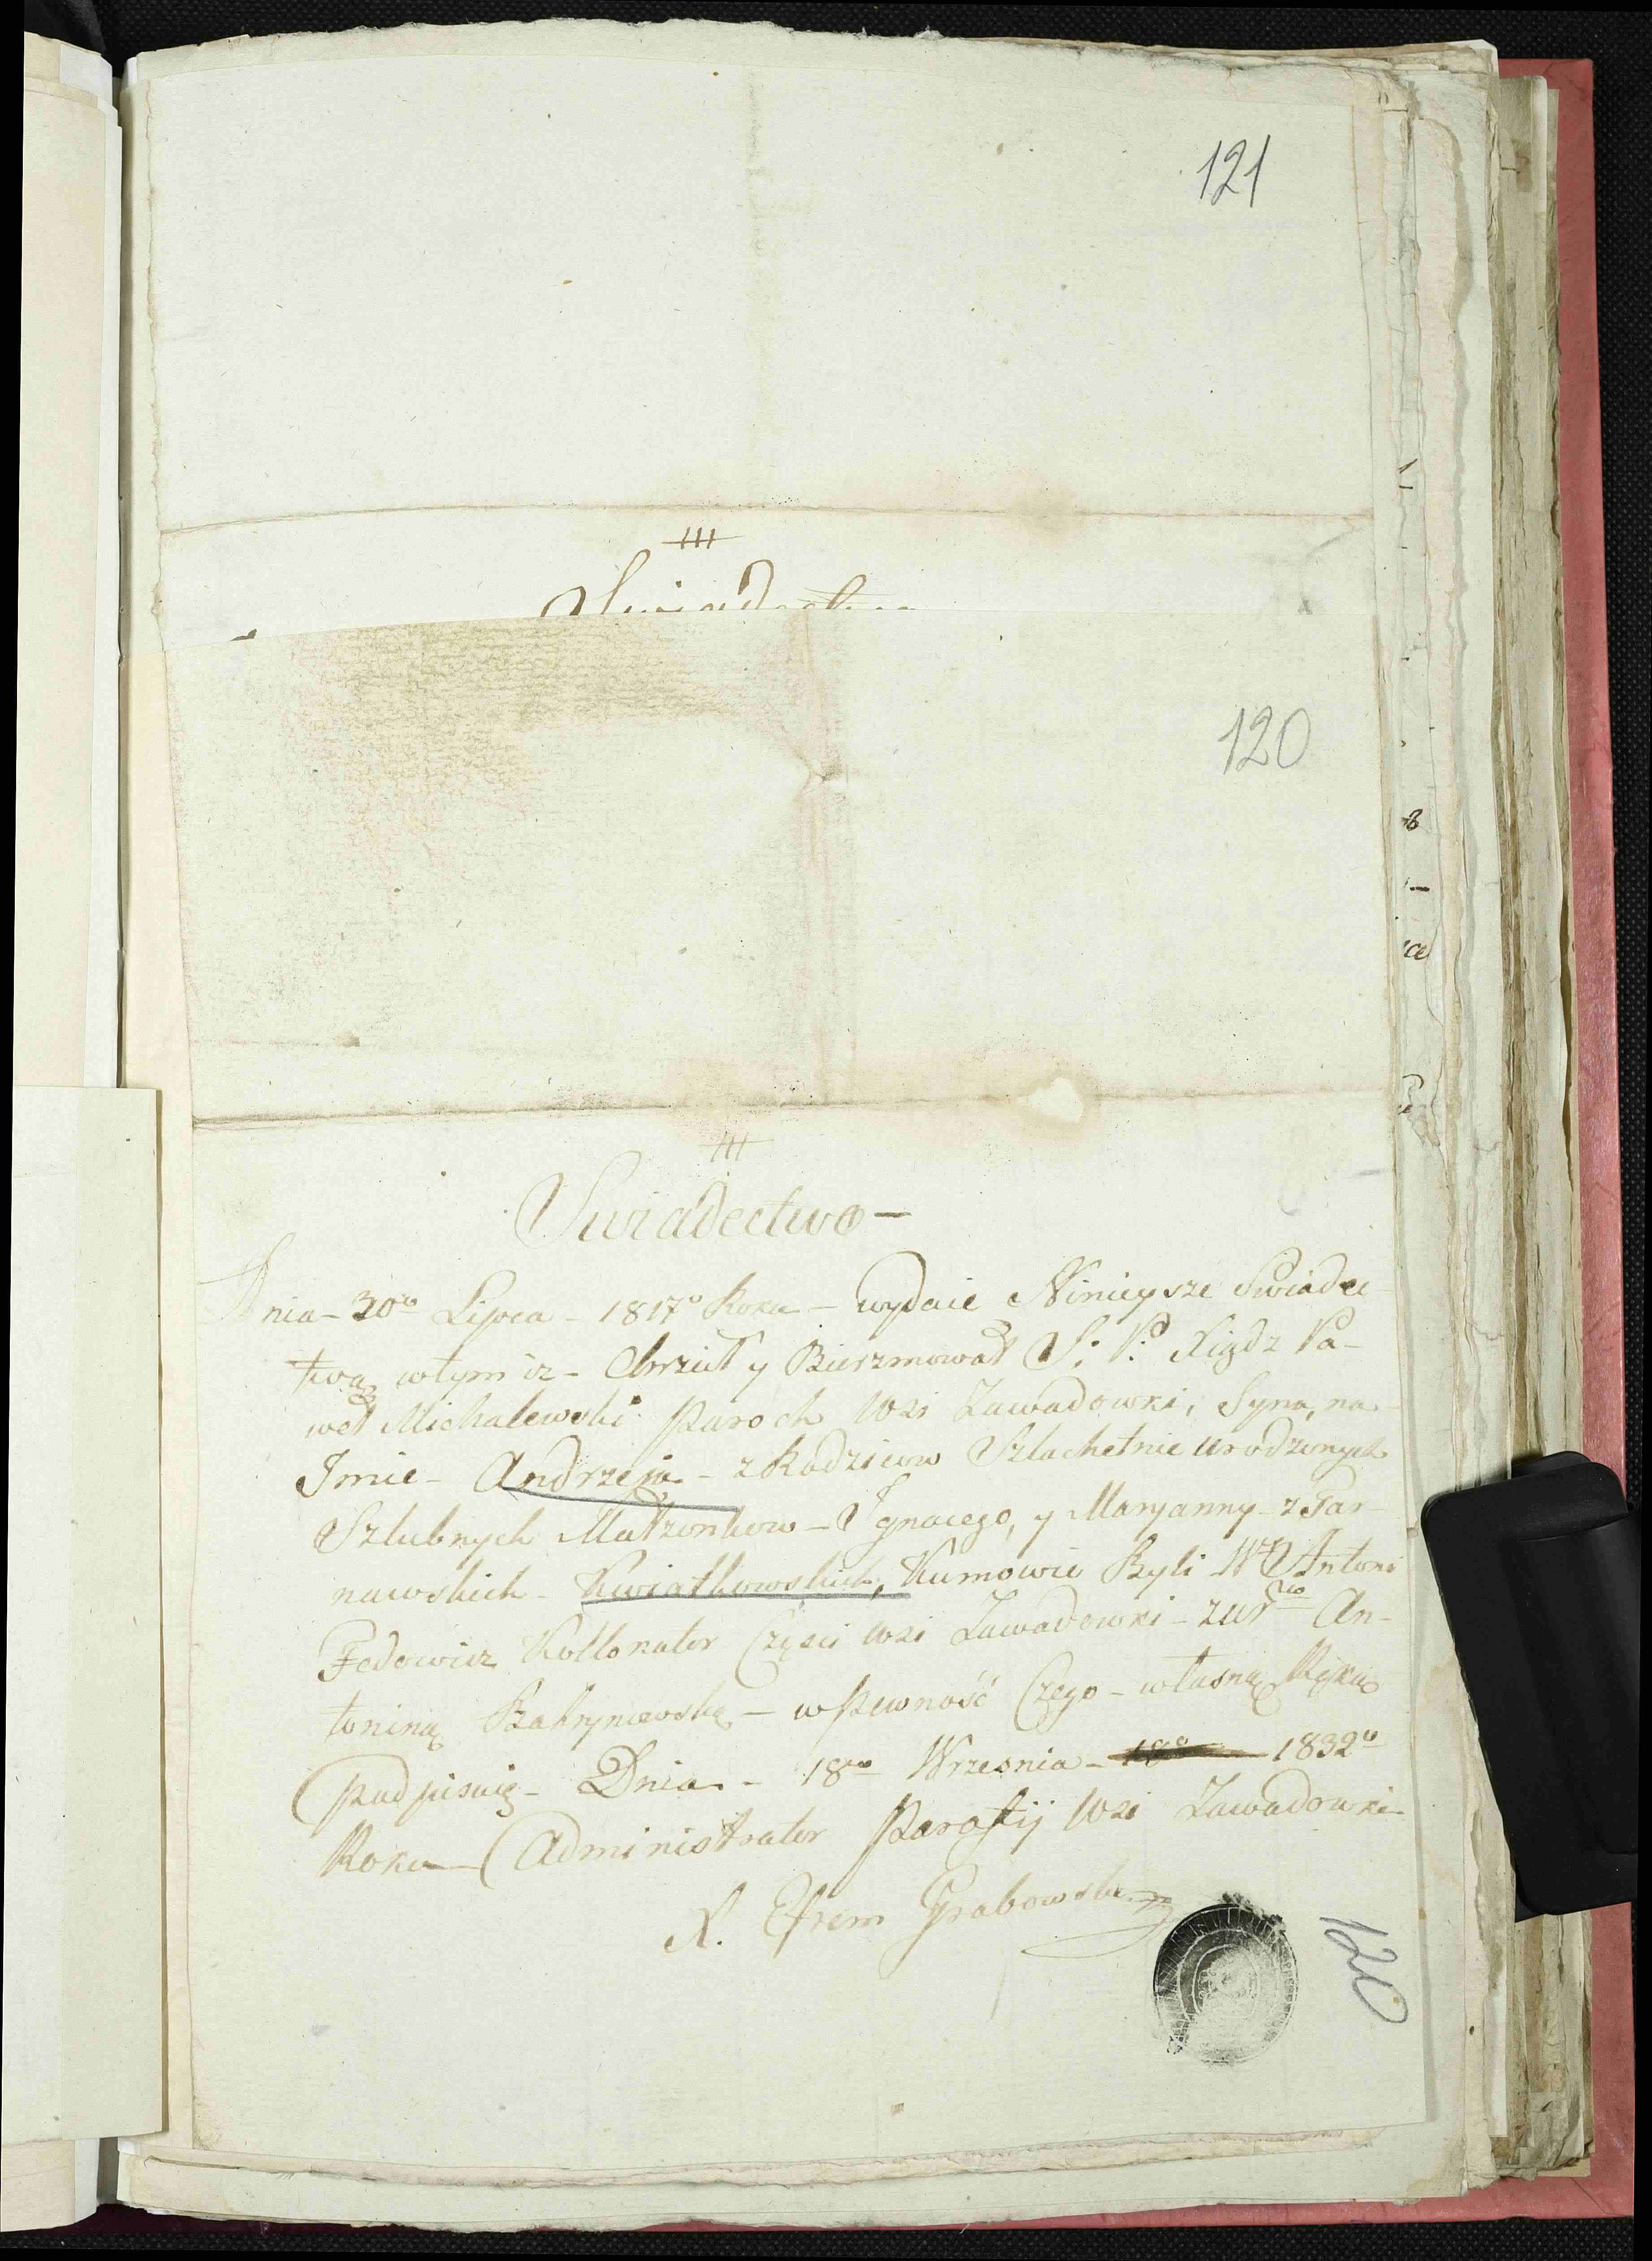 121
Swiadectwo
120
Swiadectwo—
Dnia - 30go Lipca - 1817o Roku - wydaie Nineysze Swiadec
twą wtym iz - Chrzcił y Bierzmował S: P: Xiądz Pa-
weł Michalewski Paroch Wsi Zawadowki; Syna, na
Jmie - Andrzeja - z Rodzicow Szlachetnie urodzonych
Szlubnych Małzonkow - Jgnacego, y Maryanny z Tar
nawskich - Kwiatkowskich, Kumowie Byli Wł Antoni
Fedowicz Kollonator Części Wsi Zawadowki - z Ur An-
toniną - wpewność Czego - własną Ręką
Podpisuię - Dnia - 18go Wrzesnia - 1832o
Roku - Administrator Parafij Wsi Zawadowki
X. Efrem Grabowski
120